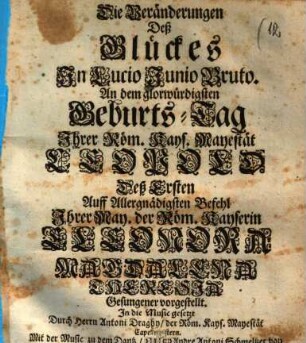 Die Veränderungen
Deß
Glückes
In Lucio Junio Bruto.
An dem glorwürdigsten
Geburts-Tag
Ihrer Röm. Kays. Mayestät
LEOPOLD
Deß Ersten
Auff Allergnädigsten Befehl
Ihrer May. der Röm. Kayserin
ELEONORA
MAGDALENA
THERESIA
Gesungener vorgestellt.
In die Music gesetzt
Durch Herrn Antoni Draghy/ der Röm. Kays. Mayestät
Capelmeistern.
Mit der Music zu dem Dantz/ Andre Antoni Schmeltzer von